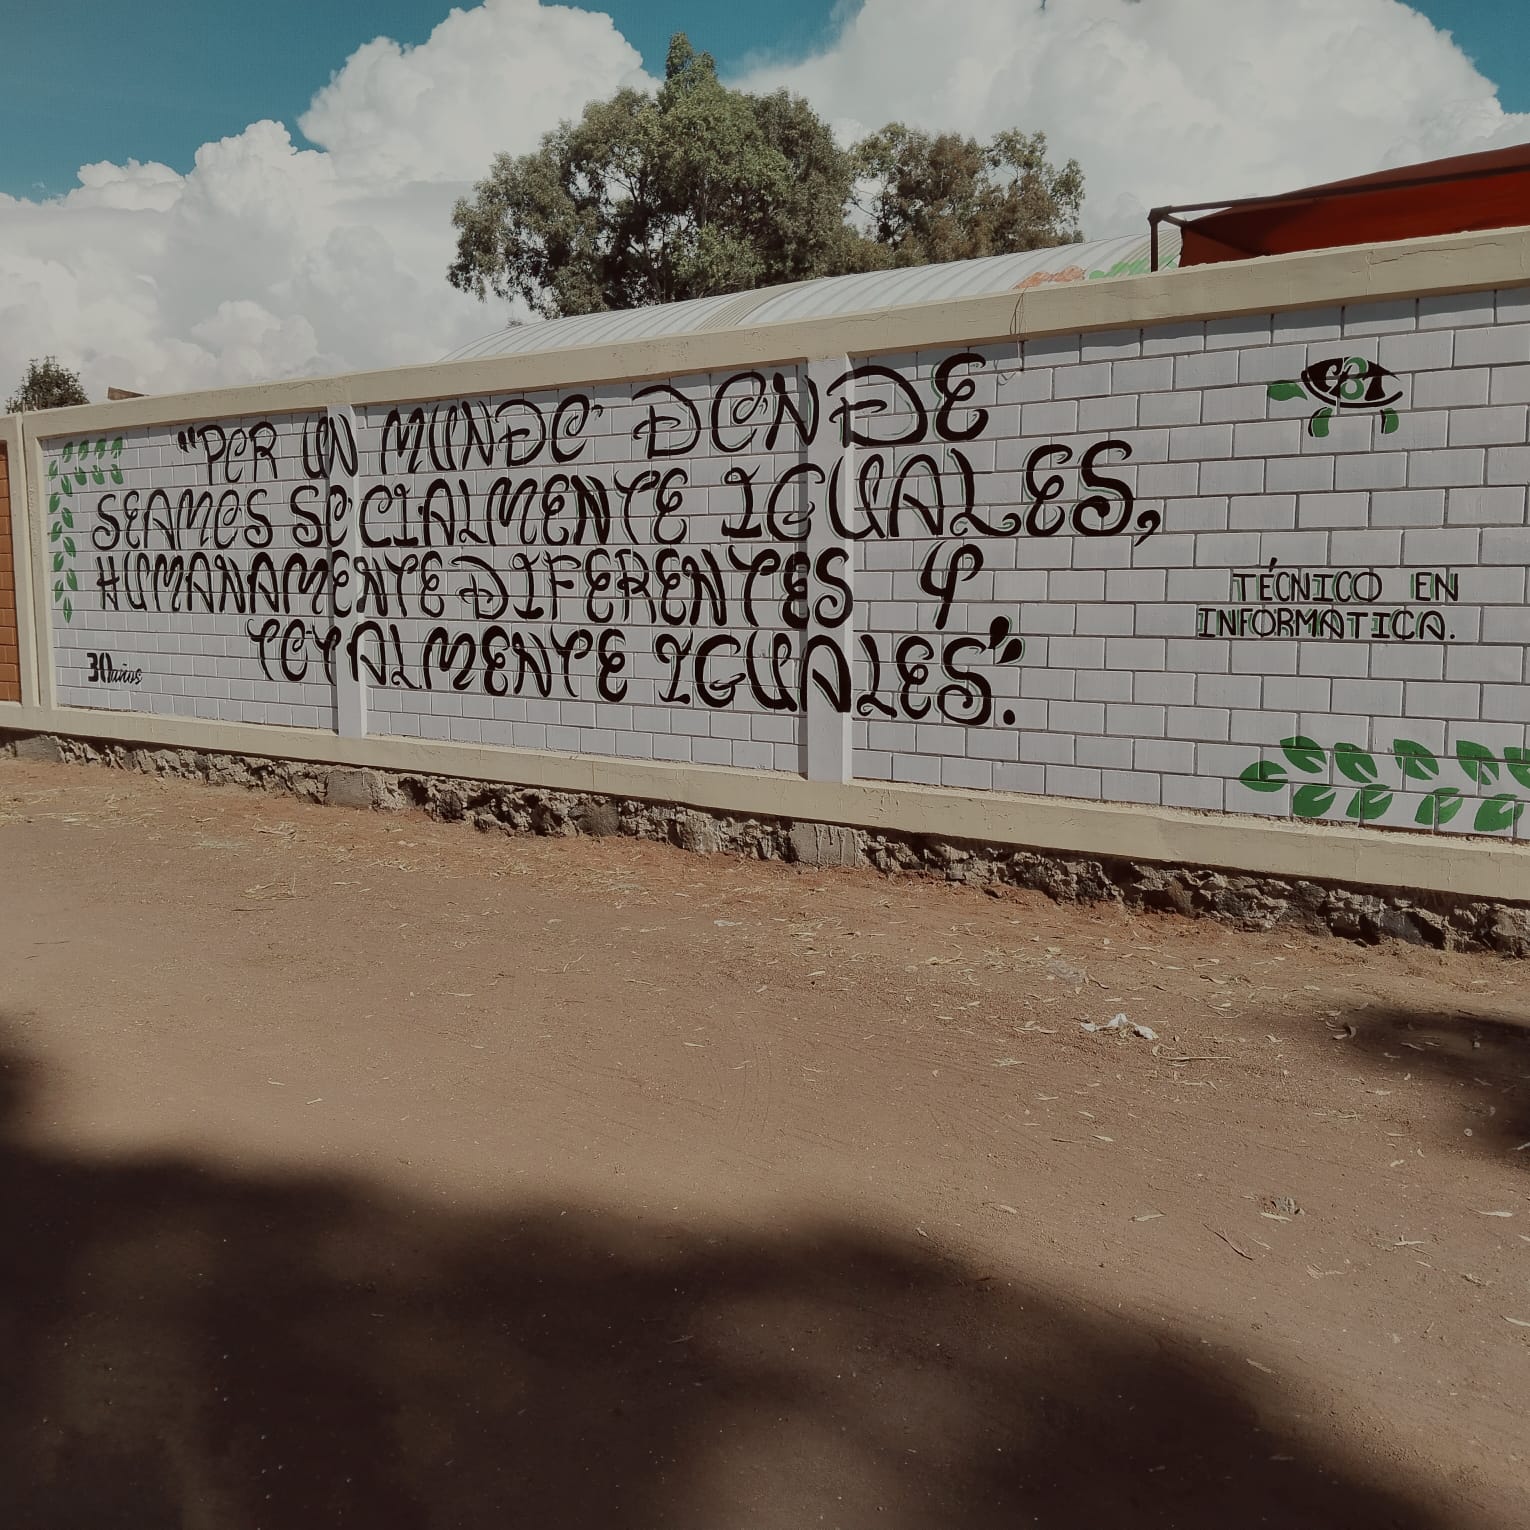 "POR UN MUNDO DONDE
SEAMOS SOCIALMENTE IGUALES,
HUMANAMENTE DIFERENTES Y
TOTALMENTE IGUALES".
30 años
CBT
TÉCNICO EN
INFORMÁTICA.